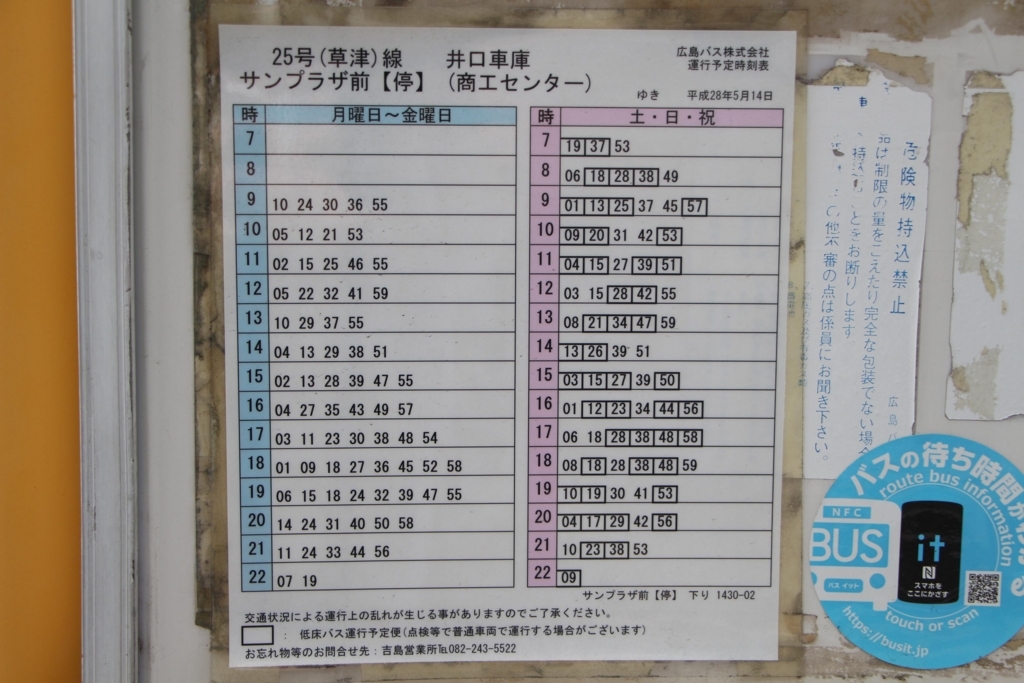 25号(草津)線 井口車庫
サンプラザ前【停】 (商工センター)
広島バス株式会社
運行予定時刻表
ゆき 平成28年5月14日
時 月曜日～金曜日
7
8
9 10 24 30 36 55
10 05 12 21 53
11 02 15 25 46 55
12 05 22 32 41 59
13 10 29 37 55
14 04 13 29 38 51
15 02 13 28 39 47 55
16 04 27 35 43 49 57
17 03 11 23 30 38 48 54
18 01 09 18 27 36 45 52 58
19 06 15 18 24 32 39 47 55
20 14 24 31 40 50 58
21 11 24 33 44 56
22 07 19
時 土・日・祝
7 19 37 53
8 06 18 28 38 49
9 01 13 25 37 45 57
10 09 20 31 42 53
11 04 15 27 39 51
12 03 15 28 42 55
13 08 21 34 47 59
14 13 26 39 51
15 03 15 27 39 50
16 01 12 23 34 44 56
17 06 18 28 38 48 58
18 08 18 28 38 48 59
19 10 19 30 41 53
20 04 17 29 42 56
21 10 23 38 53
22 09
サンプラザ前【停】 下り 1430-02
交通状況による運行上の乱れが生じる事がありますのでご了承ください。
： 低床バス運行予定便(点検等で普通車両で運行する場合がございます)
お忘れ物等のお問合せ先：吉島営業所℡082-243-5522
危険物持込禁止
品は制限の量をこえたり完全な包装でない場合
持込 ときお断りします
の他不審の点は係員にお聞き下さい。
広島バ
バスの待ち時間が
route bus information
NFC
BUS
バスイット
it
N
スマホを
ここにかざす
touch or scan
https://busit.jp